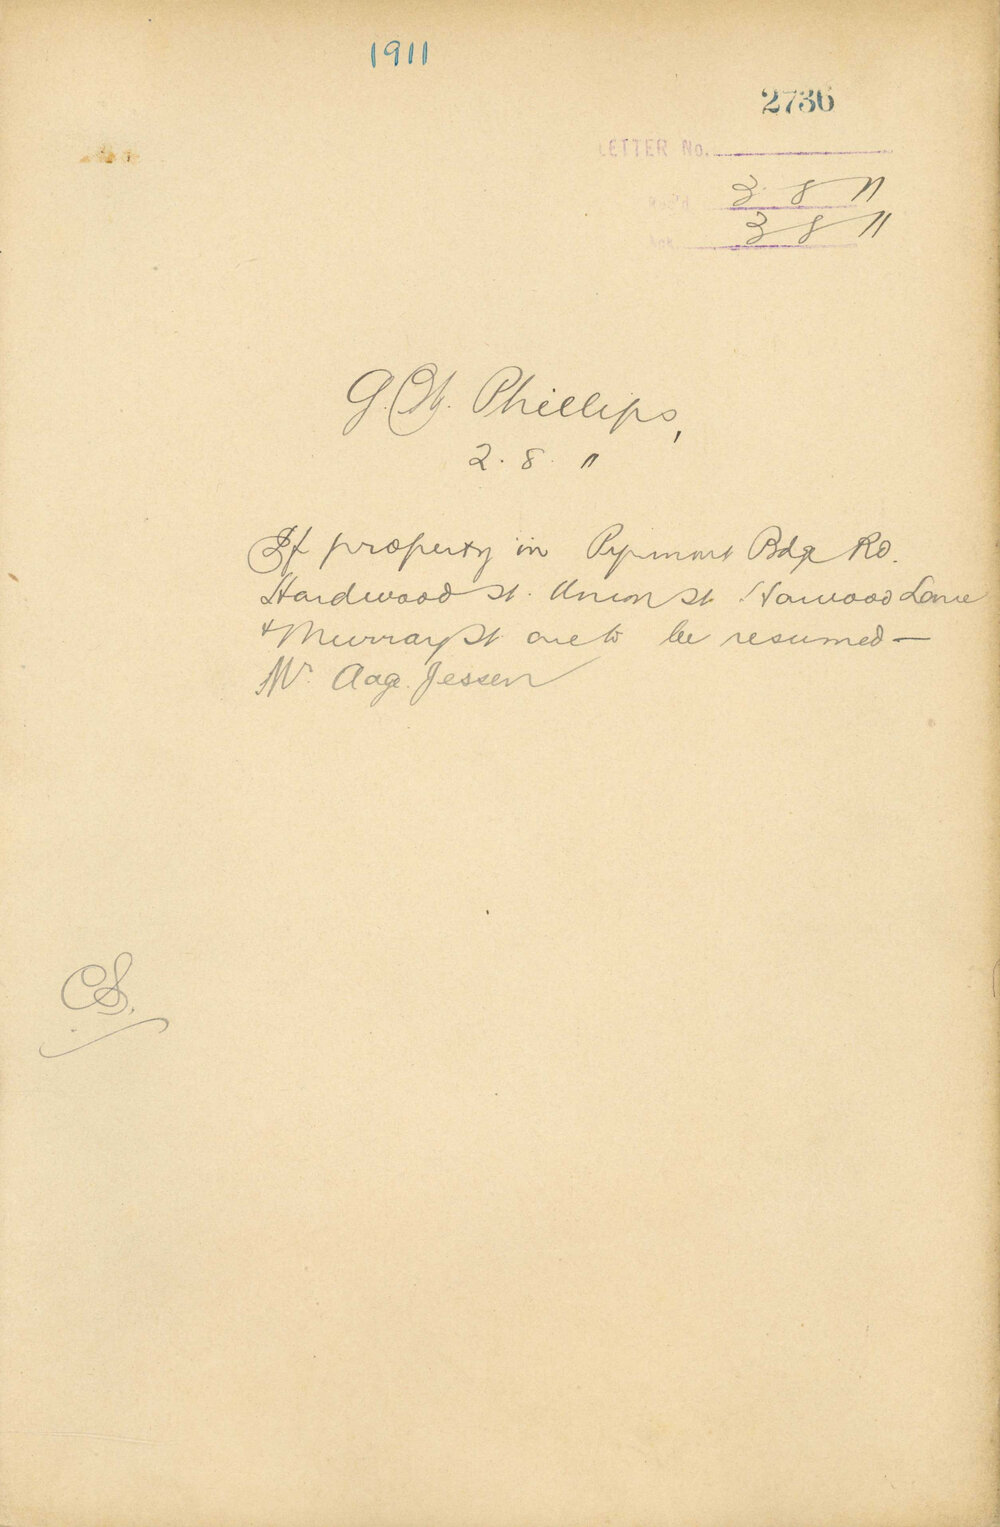 1911
2736
LETTER No.
Rec'd 3 8 11
Ack 3 8 11
G. W. Phillips,
2. 8. 11
If property in Pyrmont Bdge Rd.
Hardwood St. Union St Harwood Lane
& Murray St are to be resumed —
Mr. Aage Jessen
CS.